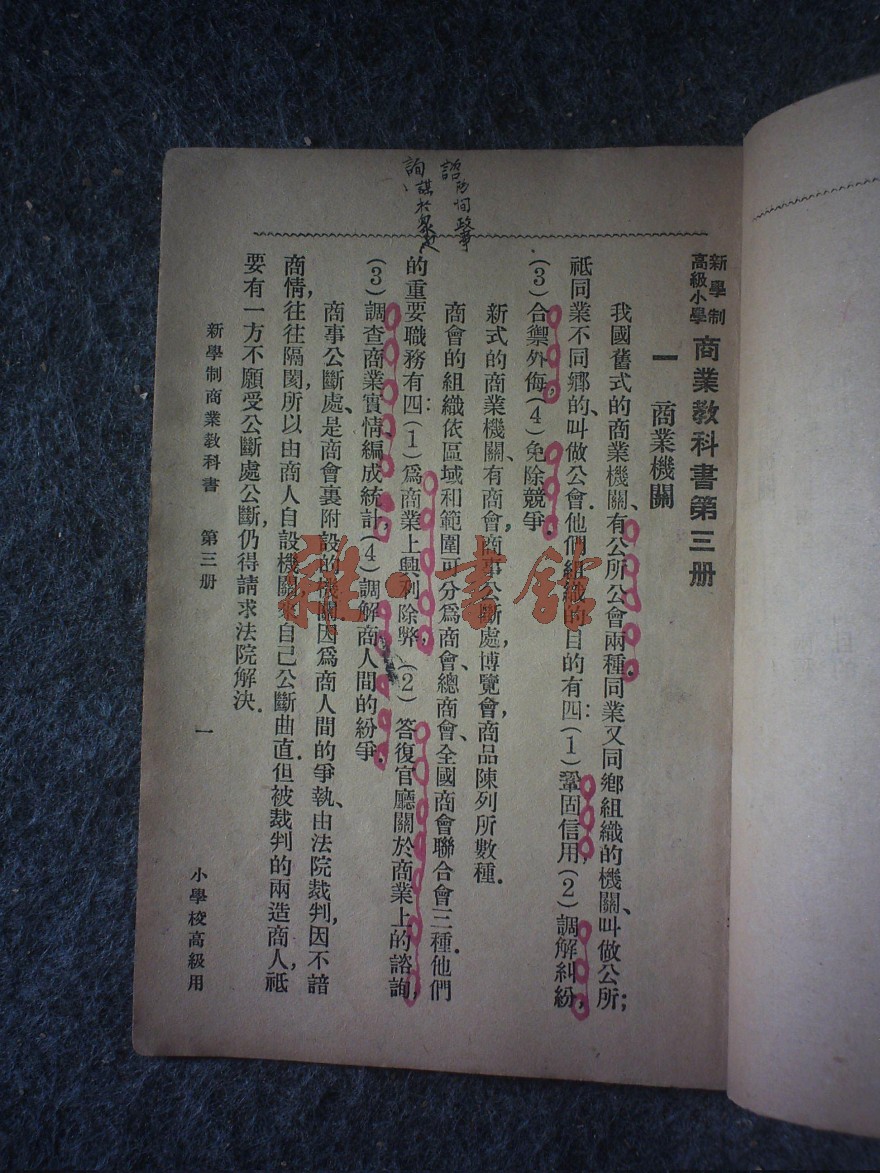 新學制
高級小學
商業教科書第三册
一 商業機關
我國舊式的商業機關、有公所公會兩種同業又同鄉組織的機關、叫做公所；
祗同業不同鄉的、叫做公會．他們組織的目的有四：(1)鞏固信用，(2)調解糾紛，
(3)合禦外侮，(4)免除競爭．
新式的商業機關、有商會，商事公斷處，博覽會，商品陳列所數種．
商會的組織依區域和範圍可分爲商會、總商會、全國商會聯合會三種．他們
的重要職務有四：(1)爲商業上興利除弊，(2)答復官廳關於商業上的諮詢，
(3)調查商業實情編成統計，(4)調解商人間的紛爭．
商事公斷處、是商會裏附設的機關因爲商人間的爭執、由法院裁判，因不諳
商情，往往隔閡所以由商人自設機關，自己公斷曲直．但被裁判的兩造商人，祗
要有一方不願受公斷處公斷，仍得請求法院解決．
新學制商業教科書 第三册 一 小學校高級用
諮
詢
謀於
雜·書館